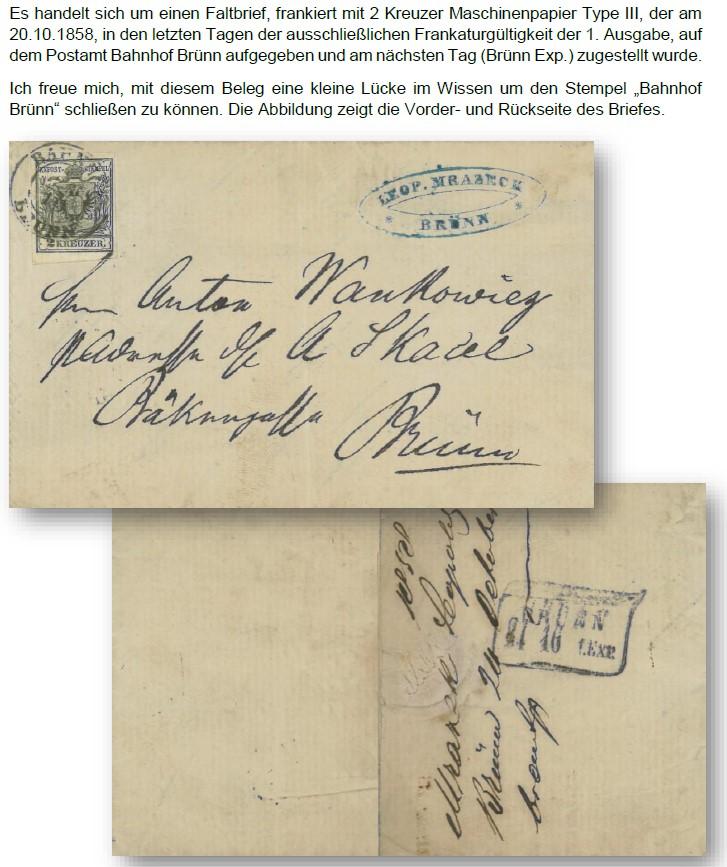 Es handelt sich um einen Faltbrief, frankiert mit 2 Kreuzer Maschinenpapier Type III, der am
20.10.1858, in den letzten Tagen der ausschließlichen Frankaturgültigkeit der 1. Ausgabe, auf
dem Postamt Bahnhof Brünn aufgegeben und am nächsten Tag (Brünn Exp.) zugestellt wurde.
Ich freue mich, mit diesem Beleg eine kleine Lücke im Wissen um den Stempel „Bahnhof
Brünn“ schließen zu können. Die Abbildung zeigt die Vorder- und Rückseite des Briefes.
2 KREUZER
LEOP. MRAZECK
BRÜNN
Anton Wankowicz
A Skacel
Brünn
1858
Leopold
Brünn 20 October
BRÜNN
21 10 EXP.